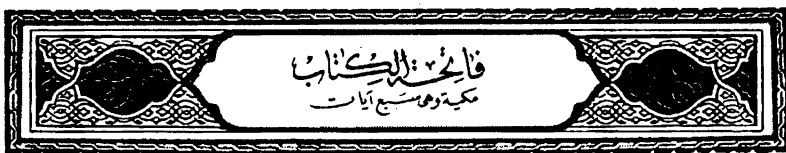 فاتحة الكتاب
مكية وهى سبع آيات